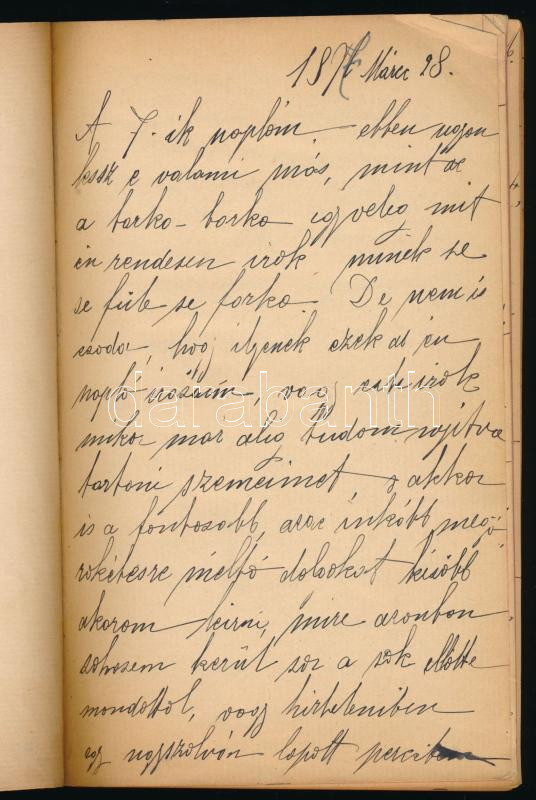 18 Márc 28.
A 7-ik naplóm, ebben ugyan
lessz e valami más, mint az
a tarka-barka egyveleg mit
én rendesen irok minek se
se füle se farka. De nem is
csoda, hogy ilyenek ezek az én
napló irásaim, vagy este irok
mikor már alig tudom nyitva
tartani szemeimet s akkor
is a fontosabb, azaz inkább megö
rökitésre méltó dolgokat később
akarom leirni, mire azonban
sohasem kerül sor a sok előtte
mondottól, vagy hirtelenében
egy ugyszolván lopott percz
darabanth